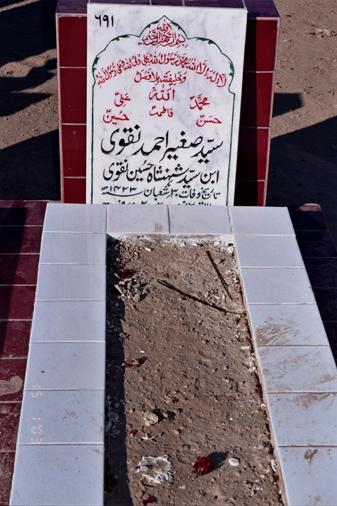 ۶۹۱
بسم اللہ الرحمن الرحیم
لا الہ الا اللہ محمد رسول اللہ علی ولی اللہ وصی رسول اللہ
وخلیفتہ بلا فصل
محمدؐ اللہ علیؑ
فاطمہؑ
حسنؑ حسینؑ
سید صغیر احمد نقوی
ابن سید شہنشاہ حسین نقوی
تاریخ وفات شعبان ۱۴۲۳ھ